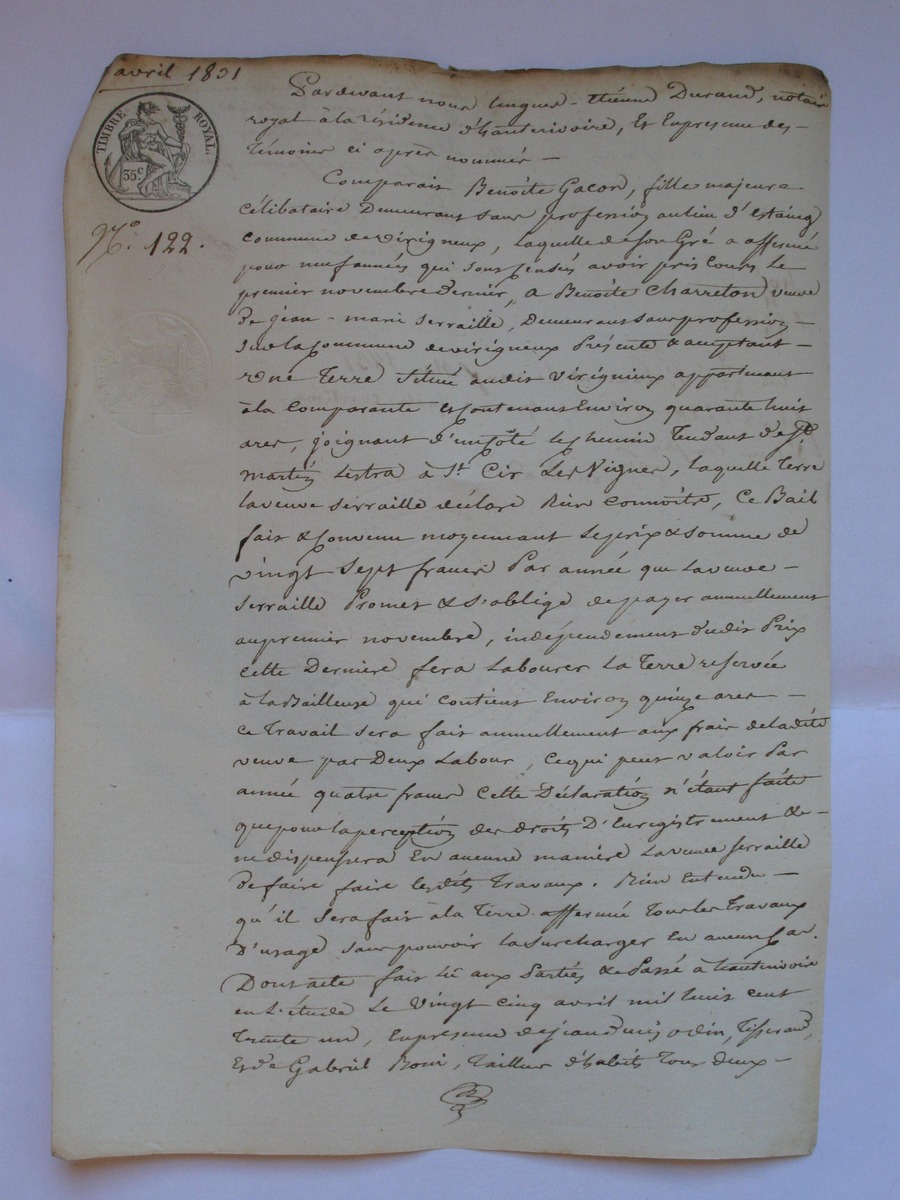 avril 1831
TIMBRE ROYAL.
35c
No. 122.
Pardevant nous hugues-étienne Durand, notaire
royal à la résidence d'hauterivoire, Et En presence des-
Témoins ci après nommés -
Comparait Benoîte Gacon, fille majeure
célibataire Demeurant Sans profession au lieu d'estaing
commune de virigneux, Laquelle de son Gré a affermé
pour neuf années qui sont Censés avoir pris cours Le
premier novembre dernier, a Benoîte Charreton veuve
de jean-marie Serraille, Demeurant Sans profession -
Sur la Commune de virigneux Présente & acceptant -
une Terre Située audit Virigneux appartenant
à la Comparante et Contenant Environ quarante huit
ares, joignant d'un Coté le chemin Tendant de St
martin Lestra à St. Cir Les Vignes, Laquelle Terre
la veuve Serraille déclare Bien connoître, Ce Bail
fait & Convenu moyennant Le prix & Somme de
vingt Sept francs Par année que La veuve -
Serraille Promet & S'oblige de payer annuellement
au premier novembre, indépendement dudit Prix
cette Dernière fera Labourer La Terre reservée
à la Bailleuse qui contient Environ quinze ares -
ce Travail Sera fait annuellement aux frais de la dite
veuve par Deux Labour, Ce qui peut valoir Par
année quatre francs Cette Déclaration n'étant faite
que pour la perception des droits D'Enregistrement & -
ne dispensera En aucune manière La veuve Serraille
de faire faire lesdits Travaux. Bien Entendu -
qu'il Sera fait à la Terre affermée Tous les Travaux
D'usage sans pouvoir la Surcharger En aucun Cas.
Dont acte fait Lû aux Parties & Passé à hauterivoire
en L'étude Le Vingt Cinq avril mil huit cent
Trente un, En presence de jean denis odin, Tisserand,
Et de Gabriel Boni, Tailleur d'habits Tous deux -